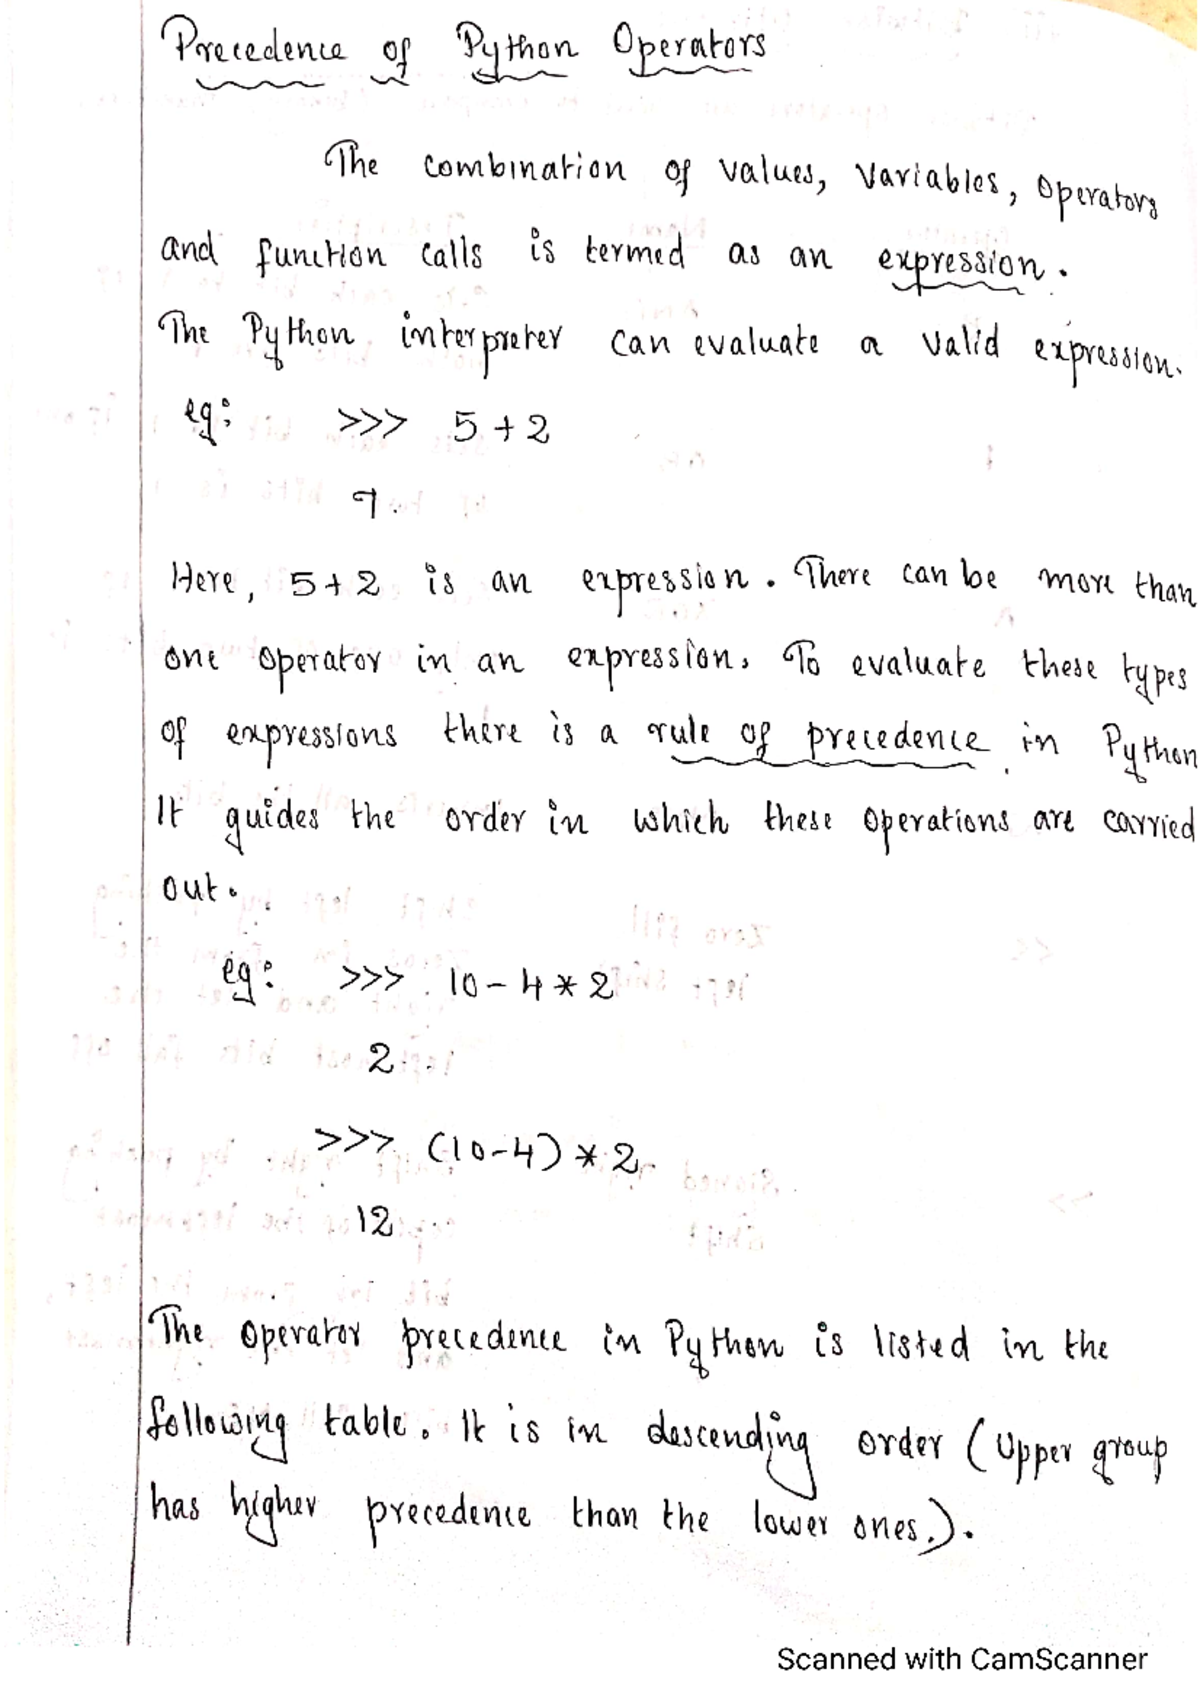 Precedence of Python Operators
The combination of values, variables, operators
and function calls is termed as an expression.
The Python interpreter can evaluate a valid expression.
eg: >>> 5 + 2
7.
Here, 5+2 is an expression. There can be more than
one operator in an expression. To evaluate these types
of expressions there is a rule of precedence in Python
It guides the order in which these operations are carried
out.
eg: >>> 10 - 4 * 2
2
>>> (10-4) * 2
12
The operator precedence in Python is listed in the
following table. It is in descending order (Upper group
has higher precedence than the lower ones.).
Scanned with CamScanner